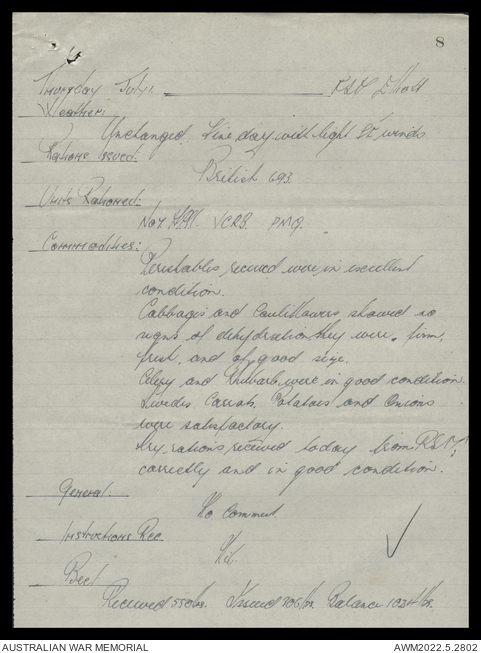 8
Thursday July.
Weather:
Unchanged. Fine day with light winds
Rations Issued:
British 693.
Units Rationed:
No 4 PMQ.
Commodities:
Perishables received were in excellent
condition.
Cabbages and Cauliflowers showed no
signs of dehydration, they were firm,
fresh, and of good size.
Celery and Rhubarb were in good condition.
Swedes Carrots, Potatoes and Onions
were satisfactory.
Dry rations received today from
correctly and in good condition.
General.
No Comment.
Instructions Rec.
Nil.
Received 550lbs. Issued 306lbs. Balance lbs.
AUSTRALIAN WAR MEMORIAL
AWM2022.5.2802